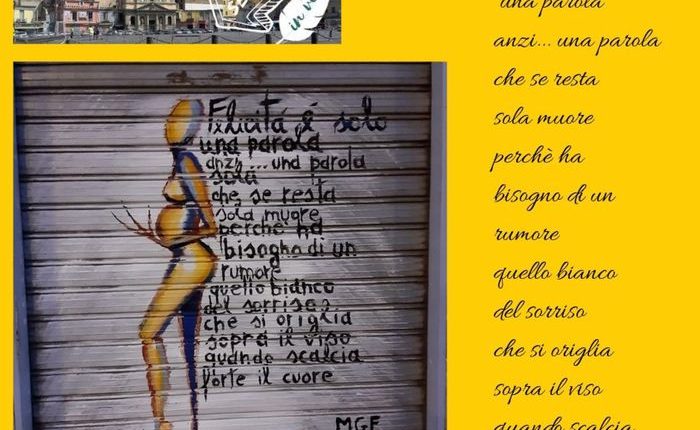 Felicitá é solo
una parola
anzi ... una parola
sola
che se resta
sola muore
perchè ha
bisogno di un
rumore
quello bianco
del sorriso
che si origlia
sopra il viso
quando scalcia
forte il cuore
MGF
una parola
anzi... una parola
che se resta
sola muore
perchè ha
bisogno di un
rumore
quello bianco
del sorriso
che si origlia
sopra il viso
quando scalcia